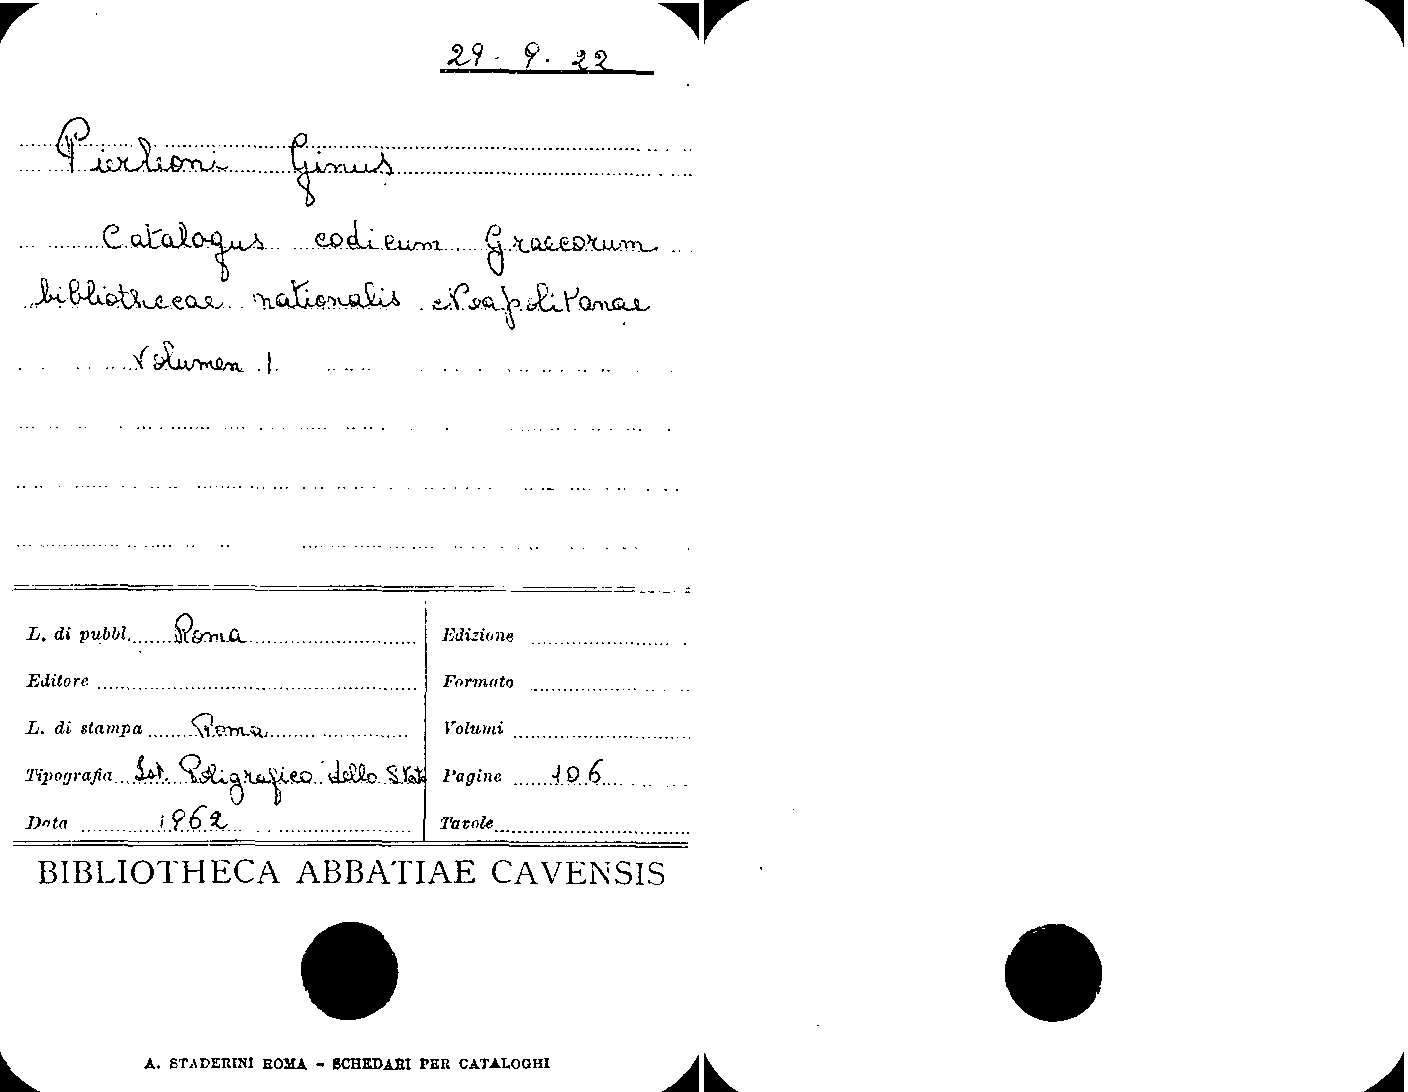 29. 9. 22
Pierleoni Ginus
Catalogus codicum Graecorum
bibliothecae nationalis Neapolitanae
Volumen I
L. di pubbl. Roma
Editore
L. di stampa Roma
Tipografia Ist. Poligrafico dello Stato
Data 1962
Edizione
Formato
Volumi
Pagine 106
Tavole
BIBLIOTHECA ABBATIAE CAVENSIS
A. STADERINI ROMA - SCHEDARI PER CATALOGHI